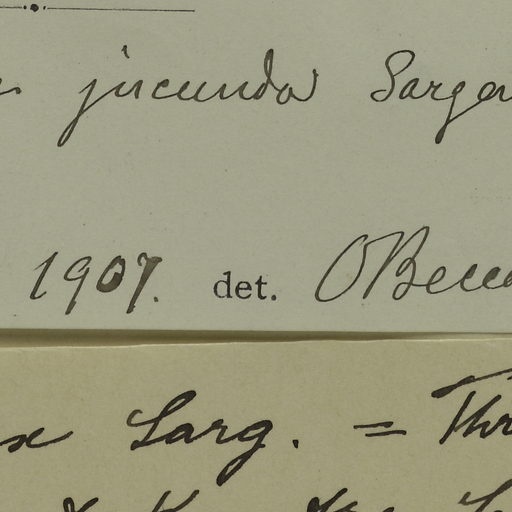 jucunda Sarge
1907. det. OBecc
x Sarg. = Thr